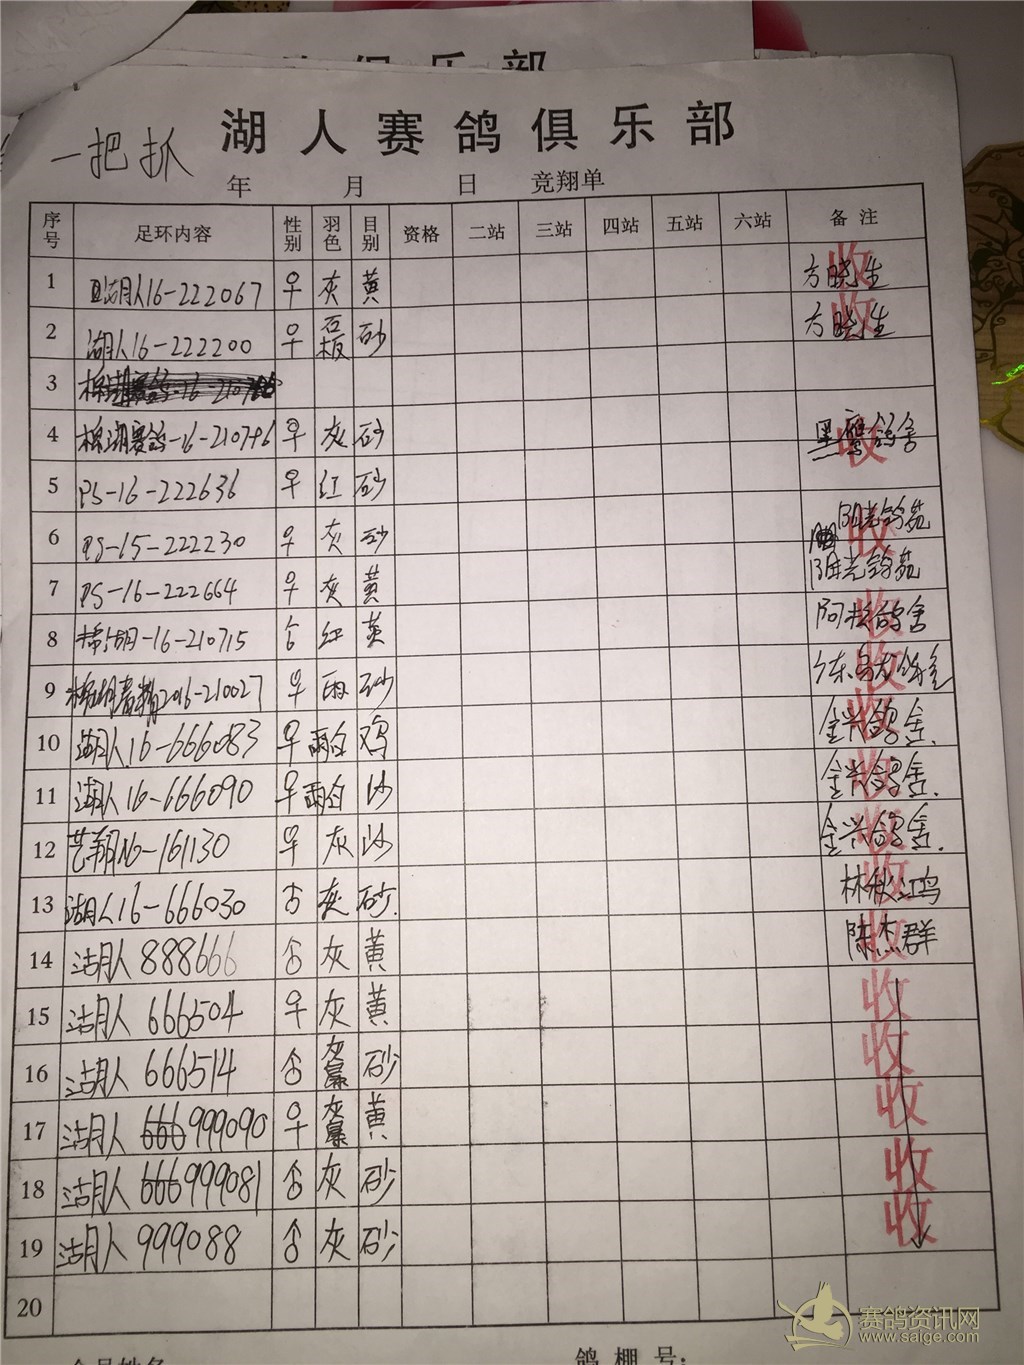 俱乐部
一把抓
湖人赛鸽俱乐部
年 月 日 竞翔单
序号 足环内容 性别 羽色 目别 资格 二站 三站 四站 五站 六站 备注
1 湖人16-222067 ♀ 灰 黄 方晓生 收
2 湖人16-222200 ♀ 石板 砂 方晓生 收
3
4 棉湖赛鸽-16-210796 ♀ 灰 砂 黑鹰鸽舍 收
5 PS-16-222636 ♀ 红 砂
6 PS-15-222230 ♀ 灰 砂 阳光鸽苑 收
7 PS-16-222664 ♀ 灰 黄 阳光鸽苑
8 棉湖-16-210715 ♂ 红 黄 鸽舍 收
9 2016-210027 ♀ 雨 砂 收
10 湖人16-666083 ♀ 雨白 鸡 金兴鸽舍. 收
11 湖人16-666090 ♀ 雨白 沙 金兴鸽舍. 收
12 艺翔16-161130 ♀ 灰 沙 金兴鸽舍. 收
13 湖人16-666030 ♂ 灰 砂. 林秋江鸟 收
14 湖人 888666 ♂ 灰 黄 陈杰群 收
15 湖人 666504 ♀ 灰 黄 收
16 湖人 666514 ♂ 砂 收
17 湖人 999090 ♀ 黄 收
18 湖人 999081 ♂ 灰 砂 收
19 湖人 999088 ♂ 灰 砂 收
20
会员姓名 鸽棚号:
赛鸽资讯网
www.saige.com